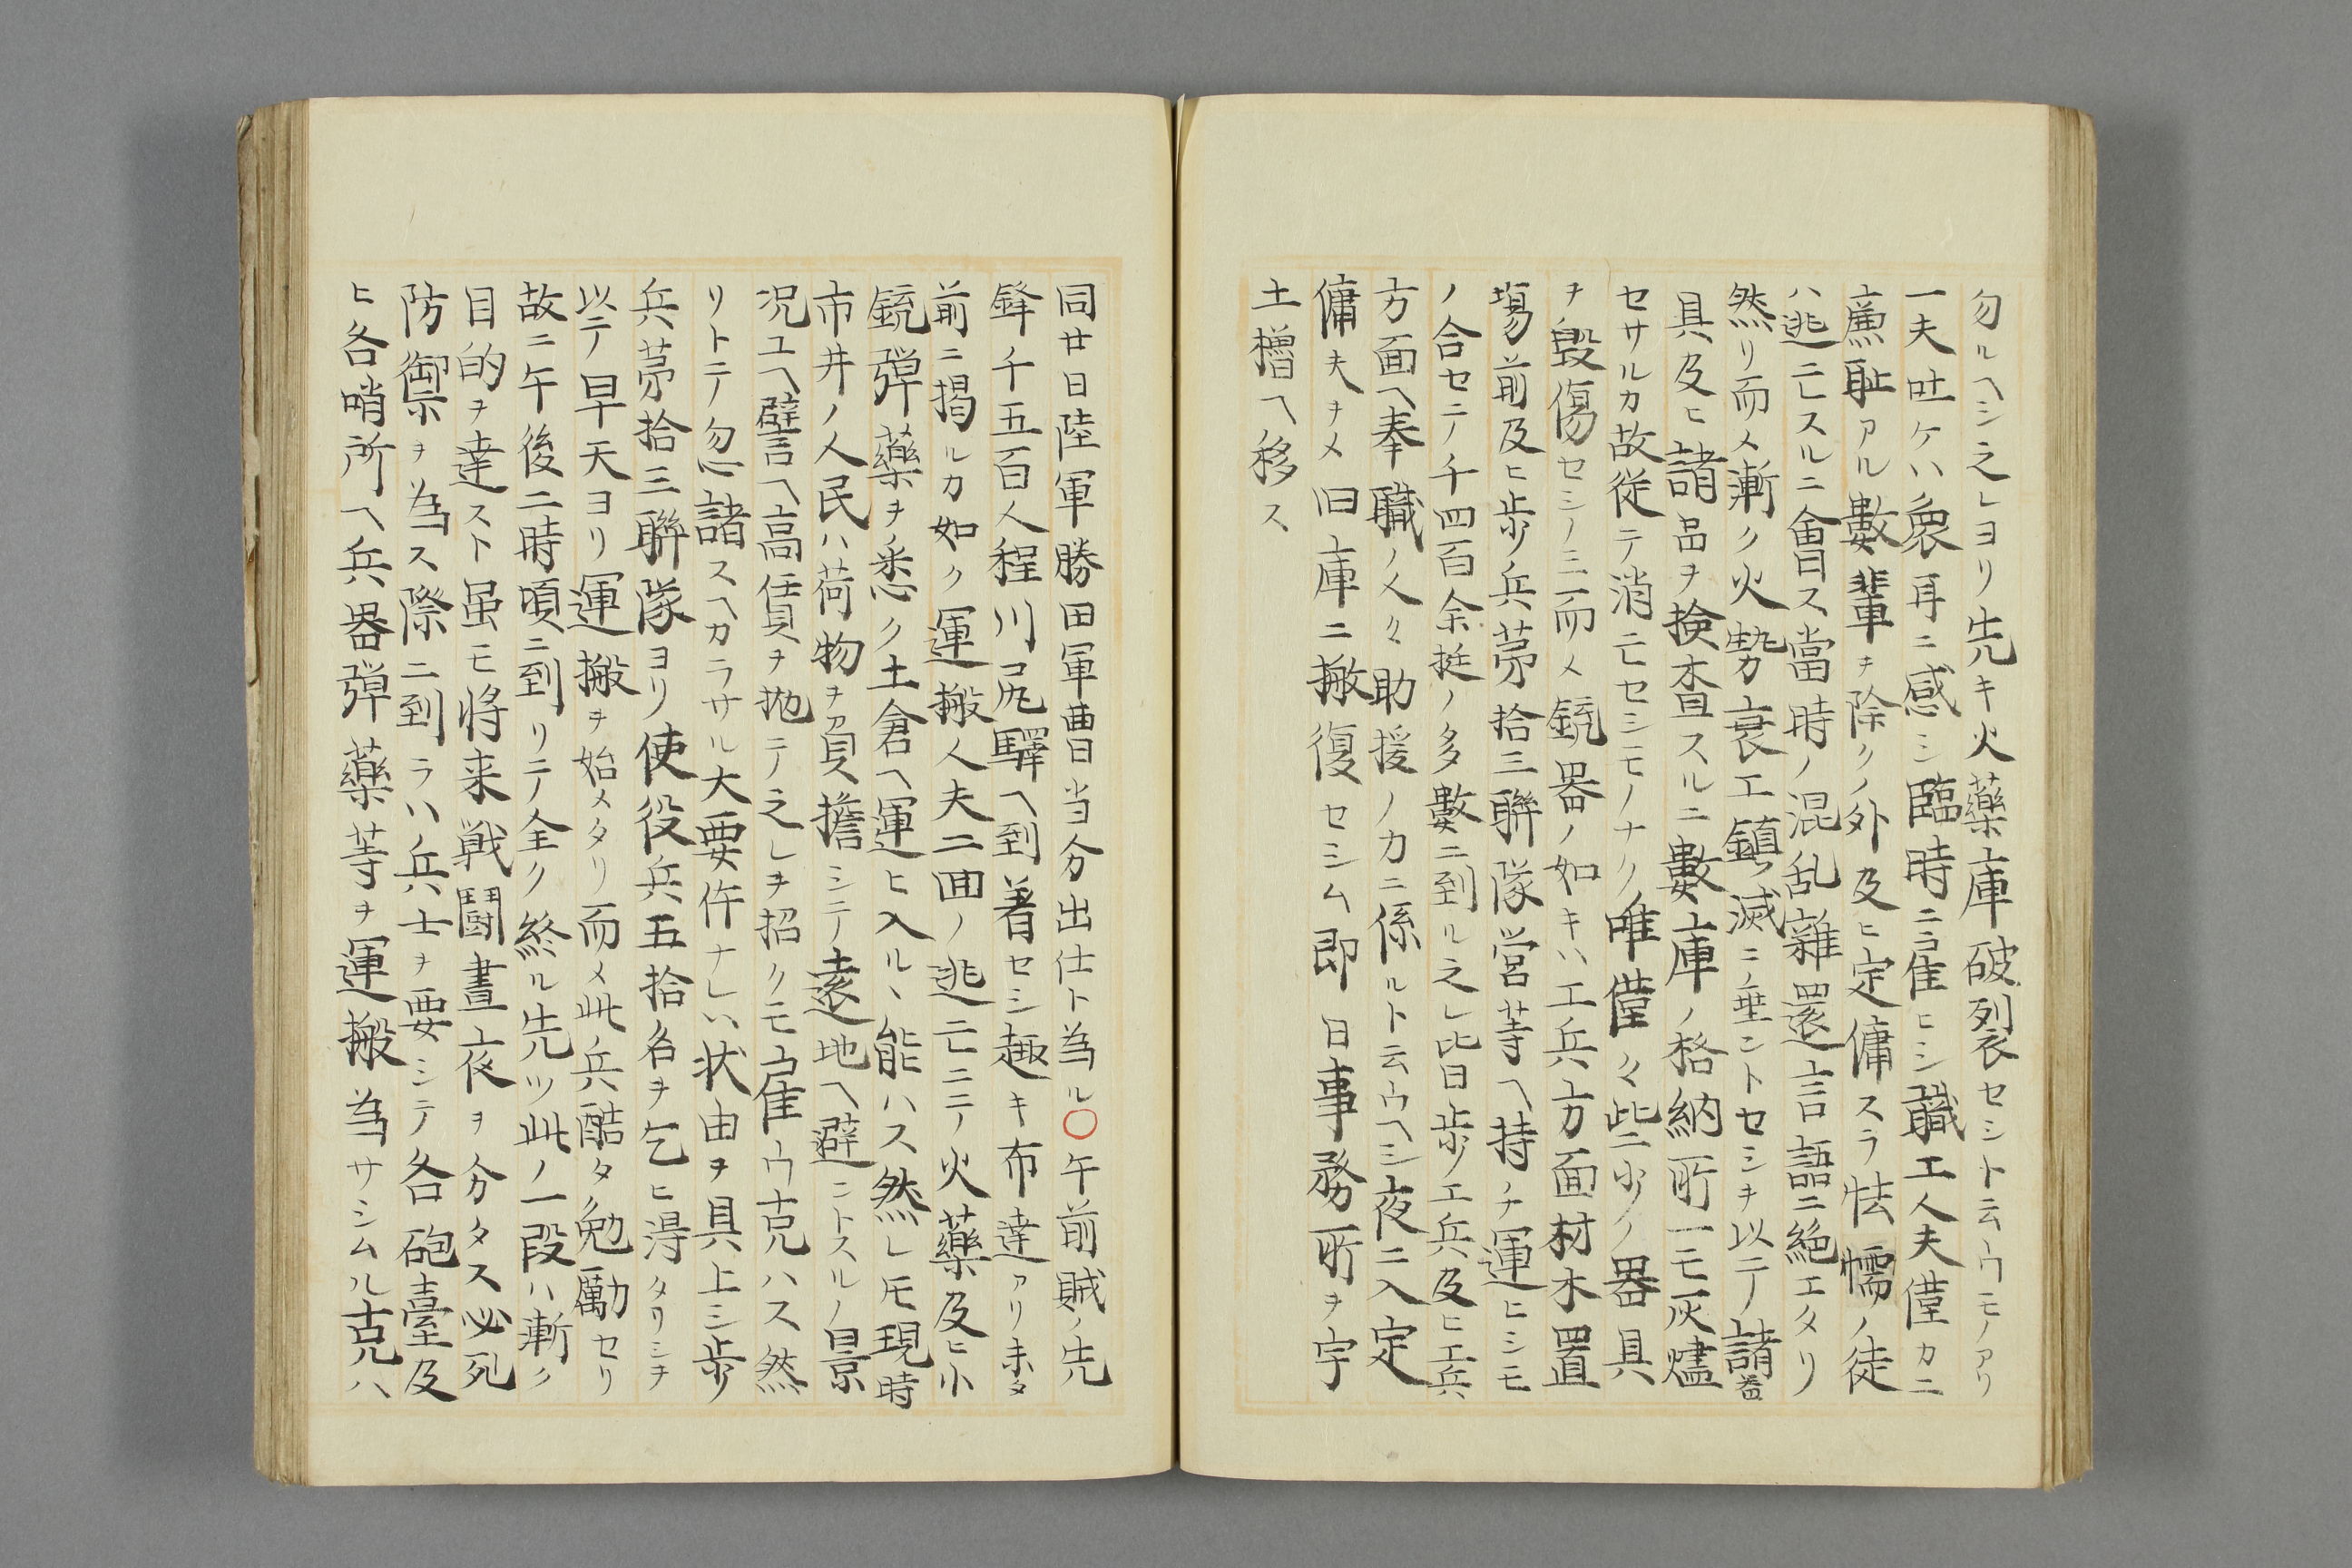 勿ルヘシ之レヨリ先キ火藥庫破裂セシト云ウモノアリ
一夫吐ケハ衆耳ニ感シ臨時ニ雇ヒシ職工人夫僅カニ
廉恥アル數輩ヲ除クノ外及ヒ定傭スラ怯懦ノ徒
ハ逃亡スルニ會ス當時ノ混乱雜還言語ニ絶エタリ
然リ而メ漸ク火勢衰エ鎮滅ニ垂ントセシヲ以テ諸器
具及ヒ諸品ヲ検査スルニ數庫ノ格納所一モ灰燼
セサルカ故従テ消亡セシモノナク唯僅々些少ノ器具
ヲ毀傷セシノミ而メ銃器ノ如キハ工兵方面材木置
場前及ヒ歩兵苐拾三聯隊営等ヘ持チ運ヒシモ
ノ合セテ千四百余挺ノ多數ニ到ル之レ皆歩工兵及ヒ工兵
方面ヘ奉職ノ人々助援ノ力ニ係ルト云ウヘシ夜ニ入定
傭夫ヲメ旧庫ニ搬復セシム即日事務所ヲ宇
土櫓ヘ移ス
同廿日陸軍勝田軍曹当分出仕ト為ル〇午前賊ノ先
鋒千五百人程川尻驛ヘ到着セシ趣キ布達アリ未タ
前ニ掲ルカ如ク運搬人夫二囲ノ逃亡ニテ火藥及ヒ小
銃弾藥ヲ悉ク土倉ヘ運ヒ入ルヽ能ハス然レ𪜈現時
市井ノ人民ハ荷物ヲ負擔シテ遠地ヘ避ントスルノ景
況ユヘ譬ヘ高賃ヲ抛テ之レヲ招クモ雇ウ克ハス然
リトテ忽諸スヘカラサル大要件ナレハ状由ヲ具上シ歩
兵苐拾三聯隊ヨリ使役兵五拾名ヲ乞ヒ得タリシヲ
以テ早天ヨリ運搬ヲ始メタリ而メ此兵酷タ勉勵セリ
故ニ午後二時頃ニ到リテ全ク終ル先ツ此ノ一段ハ漸ク
目的ヲ達スト虽モ将来戦闘晝夜ヲ分タス必死
防禦ヲ為ス際ニ到ラハ兵士ヲ要シテ各砲臺及
ヒ各哨所ヘ兵器弾藥等ヲ運搬為サシムル克ハ